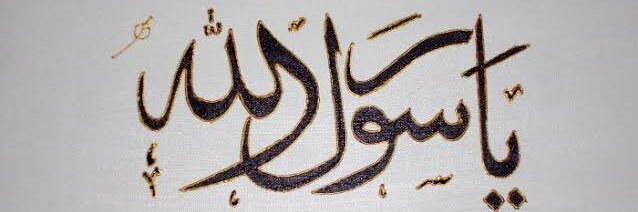 يا رسول الله